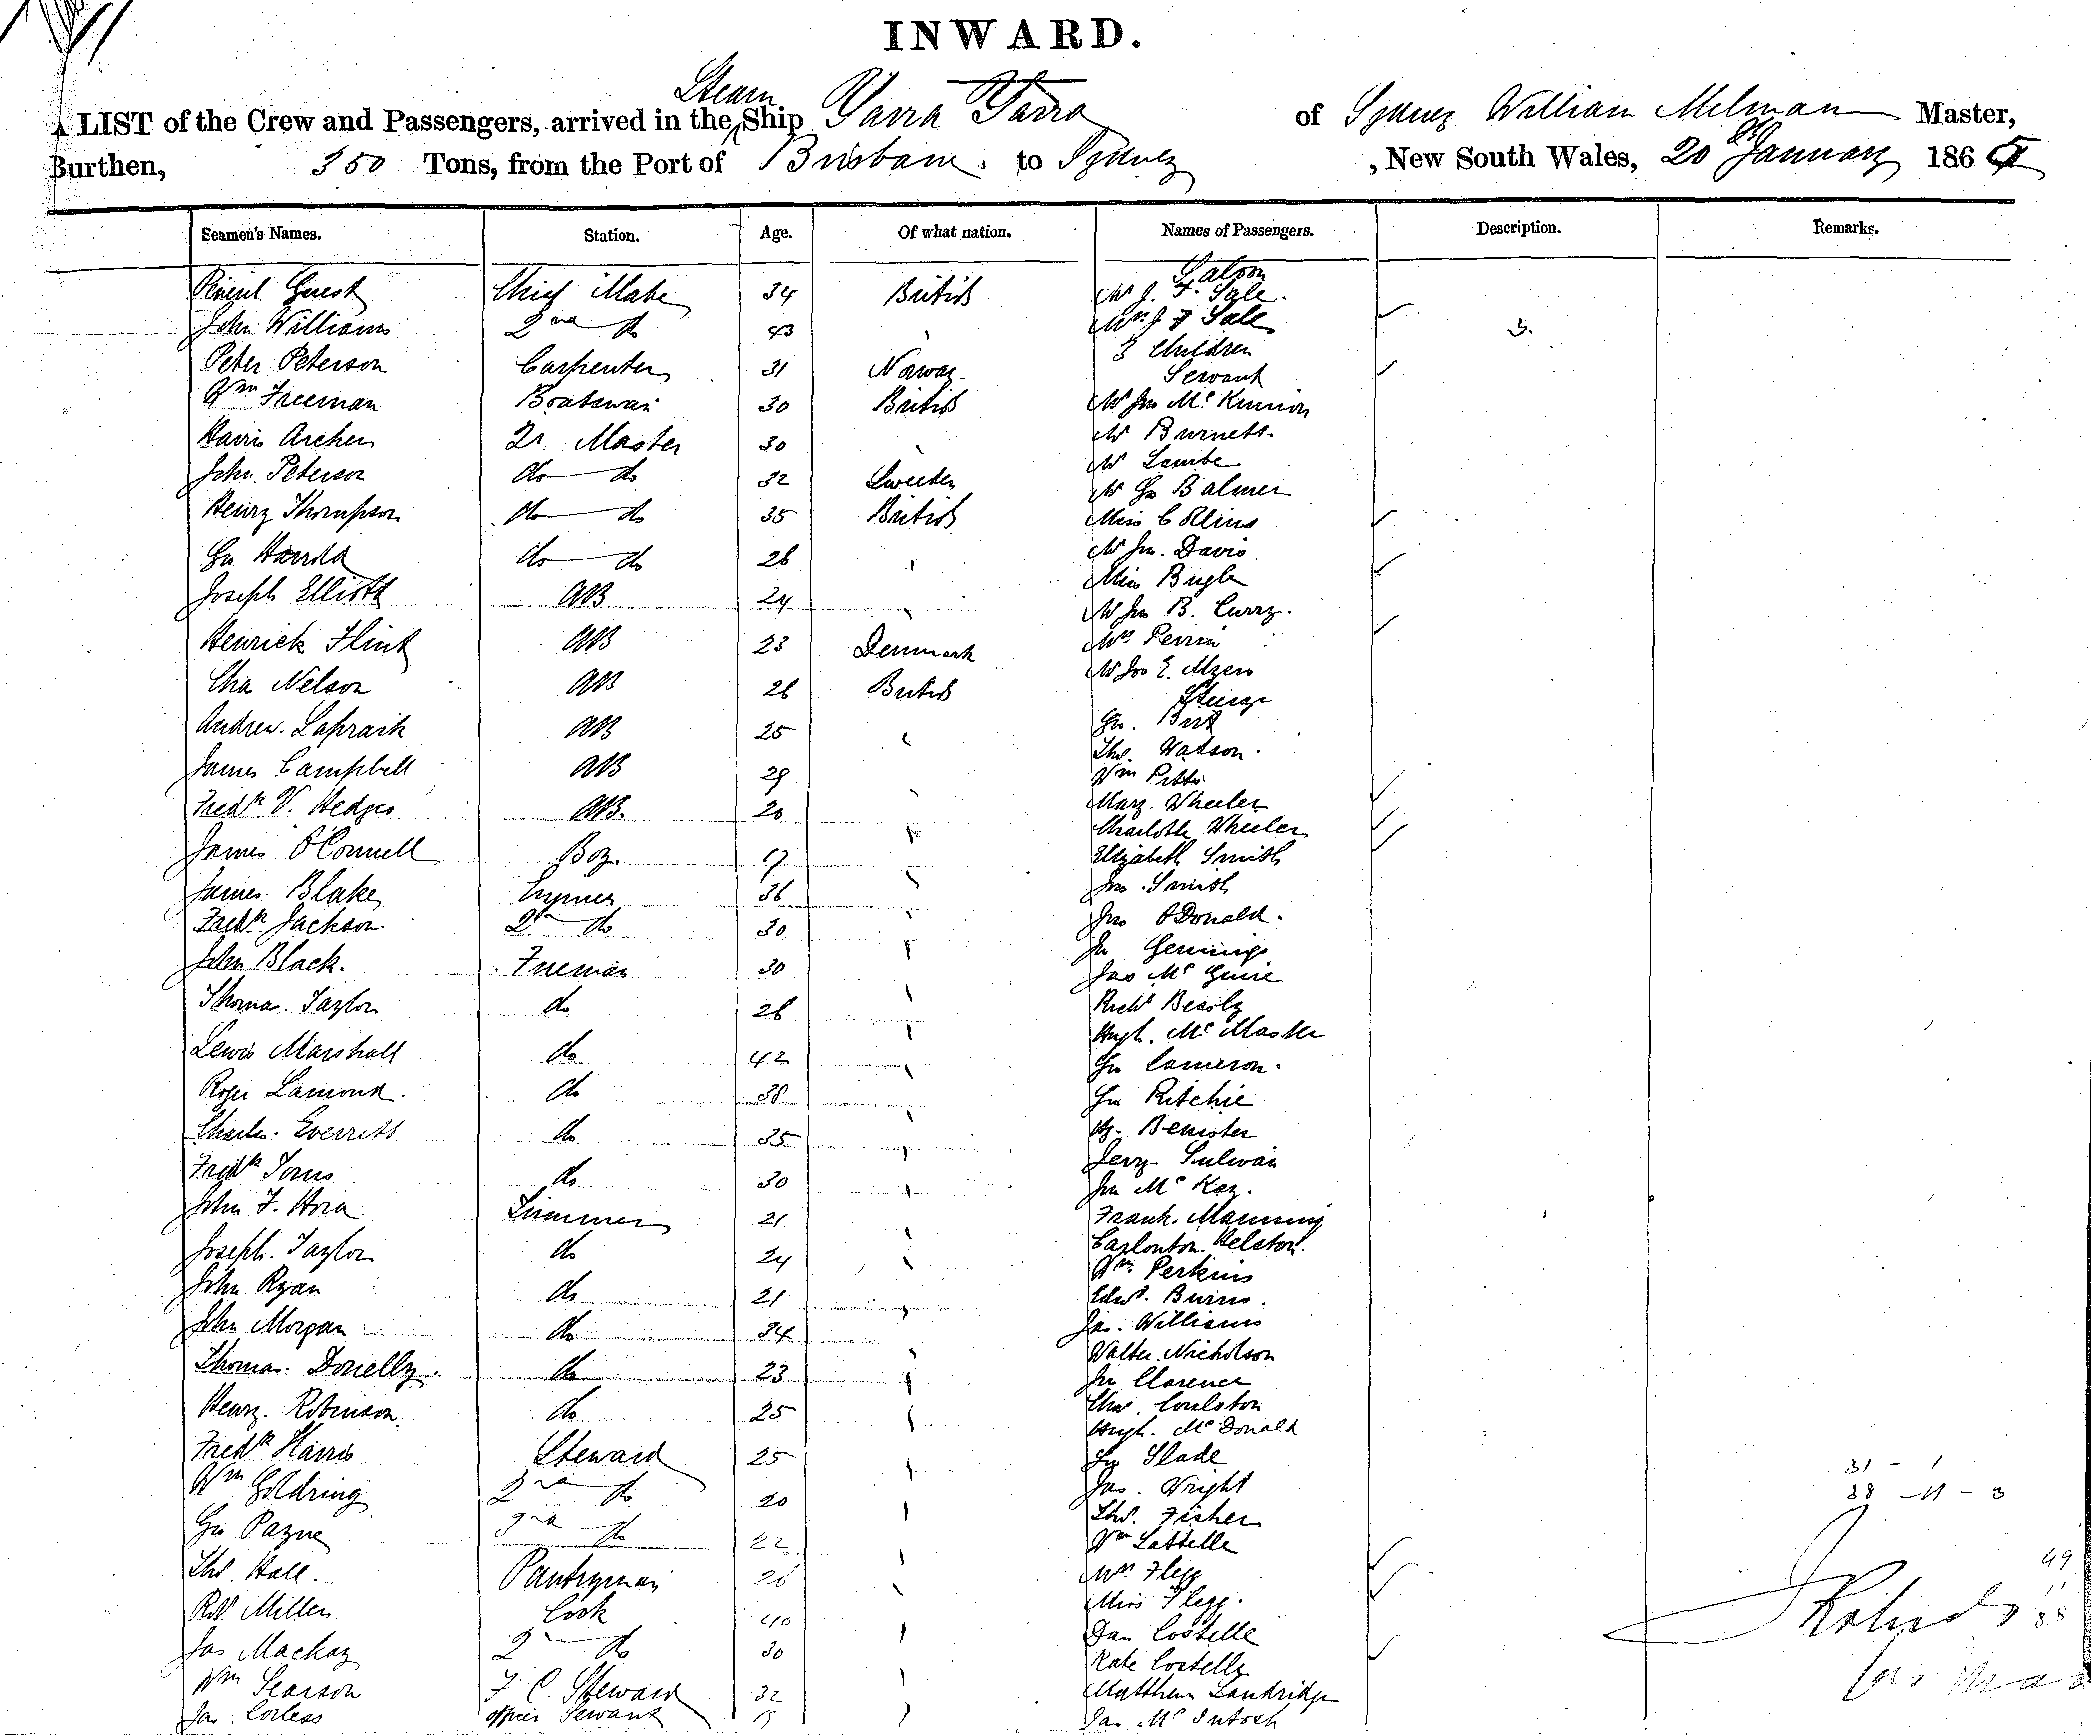 INWARD.
A LIST of the Crew and Passengers, arrived in the Steam Ship Yarra Yarra of Sydney William Milman Master,
Burthen, 350 Tons, from the Port of Brisbane to Sydney, New South Wales, 20 January 186
Seamen's Names. Station. Age. Of what nation. Names of Passengers. Description. Remarks.
Saloon
Guest Chief Mate 34 British Mr J. F. Sale.
John Williams 2nd do 43 Mrs J F Sale 3.
3 Children
Peter Peterson Carpenter 31 Norway Servant
Wm Freeman Boatswain 30 British Mr Jn McKinnon
Harris Archer Qr. Master 30 Mr Burnett
Mr Lambe
John Peterson do do 32 Sweeden Mr Geo Balmer
Henry Thompson do do 35 British Miss Collins
Mr Jn. Davis
Geo Harrold do do 26 Miss Bugle
Joseph Elliott AB 24 Mr Jn B. Curry.
Henrick Flint AB 23 Denmark Mrs Perrin
Mr Jno E. Myers
Chas Nelson AB 26 British Steerage
Andrew Lapraik AB 25 Geo. Birt
Thos. Watson.
James Campbell AB 29 Wm Pitts
Fredk V. Hedges AB. 20 Mary Wheeler
Charlotte Wheeler
James O'Connell Boy. 17 Elizabeth Smith
James Blake 36 Jno. Smith
Fredk Jackson 2nd do 30 Jno O'Donald.
Jn Gennings
John Black. Fireman 30 Jas McGuire
Thomas Taylor do 26 Richd Beasly
Hugh. McMaster
Lewis Marshall do 42 Geo Cameron.
Roger Lamond. do 38 Geo Ritchie
Charles Everritt do 35 Benister
Jery Sulivan
Fredk Jones do 30 Jn McKay.
John F. Hora Trimmer 21 Frank. Manning
Joseph. Taylor do 24 Carlonton
Wm. Perkins
John Ryan do 21 Edwd. Burns.
John Morgan do 34 Jas. Williams
Walter. Nicholson
Thomas. Donelly. do 23 Jn Clarence
Henry. Robinson do 25 Chas. Coulston
Hugh. McDonald
Fredk Harris Steward 25 Slade
Wm Goldring 2nd do 20 Jas. Wright
Geo Payne 3rd do 22 Thos. Fisher
Wm Lattelle
Thos. Hall. Pantryman 26 Mrs Flegg
Robt. Miller Cook 40 Miss Flegg.
Dan Costelle
Jas Mackay 2nd do 30 Kate Costelly
Wm Searson F. C. Steward 32 Matthew Landridge
Jas. Corless Officers Servant Jas McIntosh
31 - 1
38 - 11 - 3
49
11
38